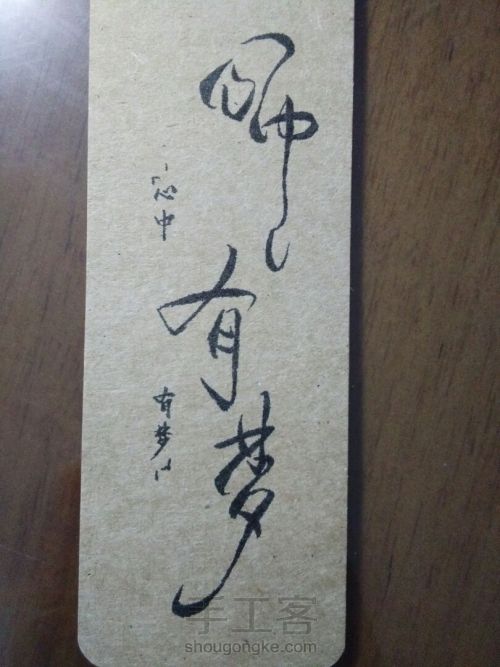 心中有梦
「心中 有梦」
手工客
shougongke.com